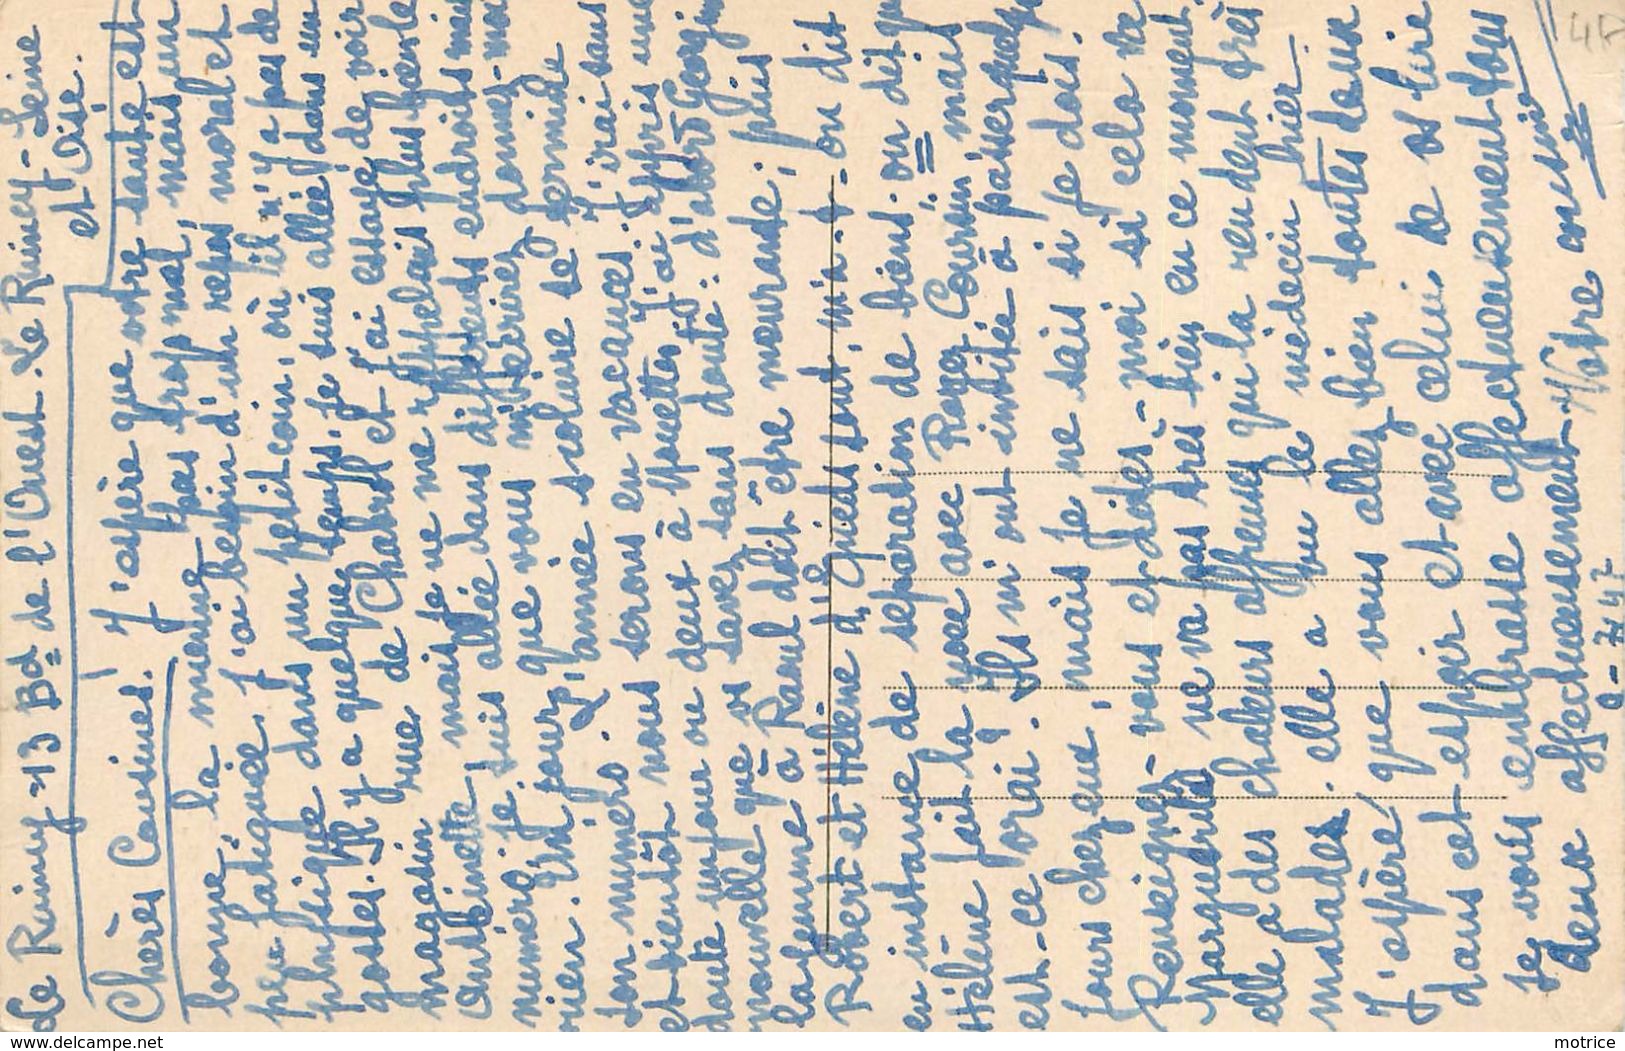 Le Raincy - 13 Bd de l'Ouest. Le Raincy - Seine
et Oise.
Chères Cousines! J'espère que votre santé est
bonne, la mienne pas trop mal, mais un
peu fatiguée, j'ai besoin d'un repos moral et
physique dans un petit coin, où il n'y a pas de
gosses. Il y a quelque temps, je suis allée dans un
magasin rue de Chabrol et j'ai essayé de voir
Antoinette, mais je ne me rappelais plus bien le
numéro, je suis allée dans différents endroits mais
rien. Un jour que vous m'écrirez donnez-moi
son numéro. L'année scolaire se termine
et bientôt nous serons en vacances. J'irai sans
doute un jour ou deux à Mouettes. J'ai appris une
nouvelle que vs savez sans doute: d'abord Georgin
la femme à Raoul doit être mourante; puis
Robert et Hélène d'Epieds sont, m'a-t-on dit
en instance de séparation de biens. on dit q
Hélène fait la noce avec Roger Coursin mais
est-ce vrai? Ils m'ont invitée à passer quelq
jours chez eux, mais je ne sais si je dois.
Renseignez-vous et dites-moi si cela va
Marguerite ne va pas très bien en ce moment,
elle a des chaleurs affreuses qui la rendent très
malades. elle a vu le médecin hier.
J'espère que vous allez bien toutes deux
dans cet espoir et avec celui de vs lire
je vous embrasse affectueusement tous
deux affectueusement. Votre cousine
9-7-47
4P
https://www.delcampe.net
motrice